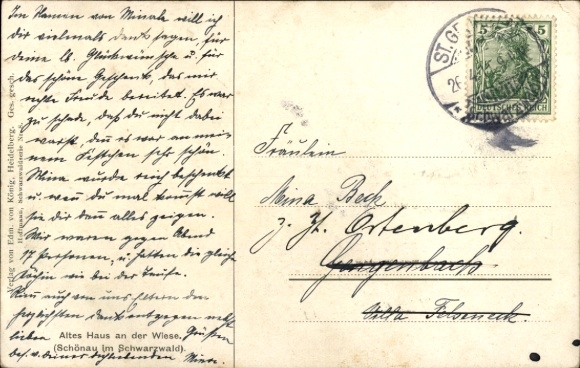 Im Namen von Minale will ich
dir vielemals Dank sagen, für
deine lb. Glückwünsche u. für
das schöne Geschenk, das mir
Freude bereitet. Es war
zu schade, daß du nicht dabei
warst, denn es war an mei-
nem Festchen sehr schön.
Mina wurde reich beschenkt
u. wenn du mal kommst will
sie dir dann alles zeigen.
Wir waren gegen Abend
17 Personen, u. hatten die gleiche
Köchin wie bei der Taufe.
auch von uns Eltern den
herzlichsten Dank entgegen
lieben Grüßen
bes. v. deiner dich liebenden Mina.
Verlag von Edm. von König, Heidelberg. Ges. gesch.
Hoffmann, Schwarzwaldserie No.
Altes Haus an der Wiese.
(Schönau im Schwarzwald).
ST. GE
5 5
DEUTSCHES REICH
Fräulein
Mina Beck
z. Zt. Ortenberg.
Gengenbach
Villa Felseneck.